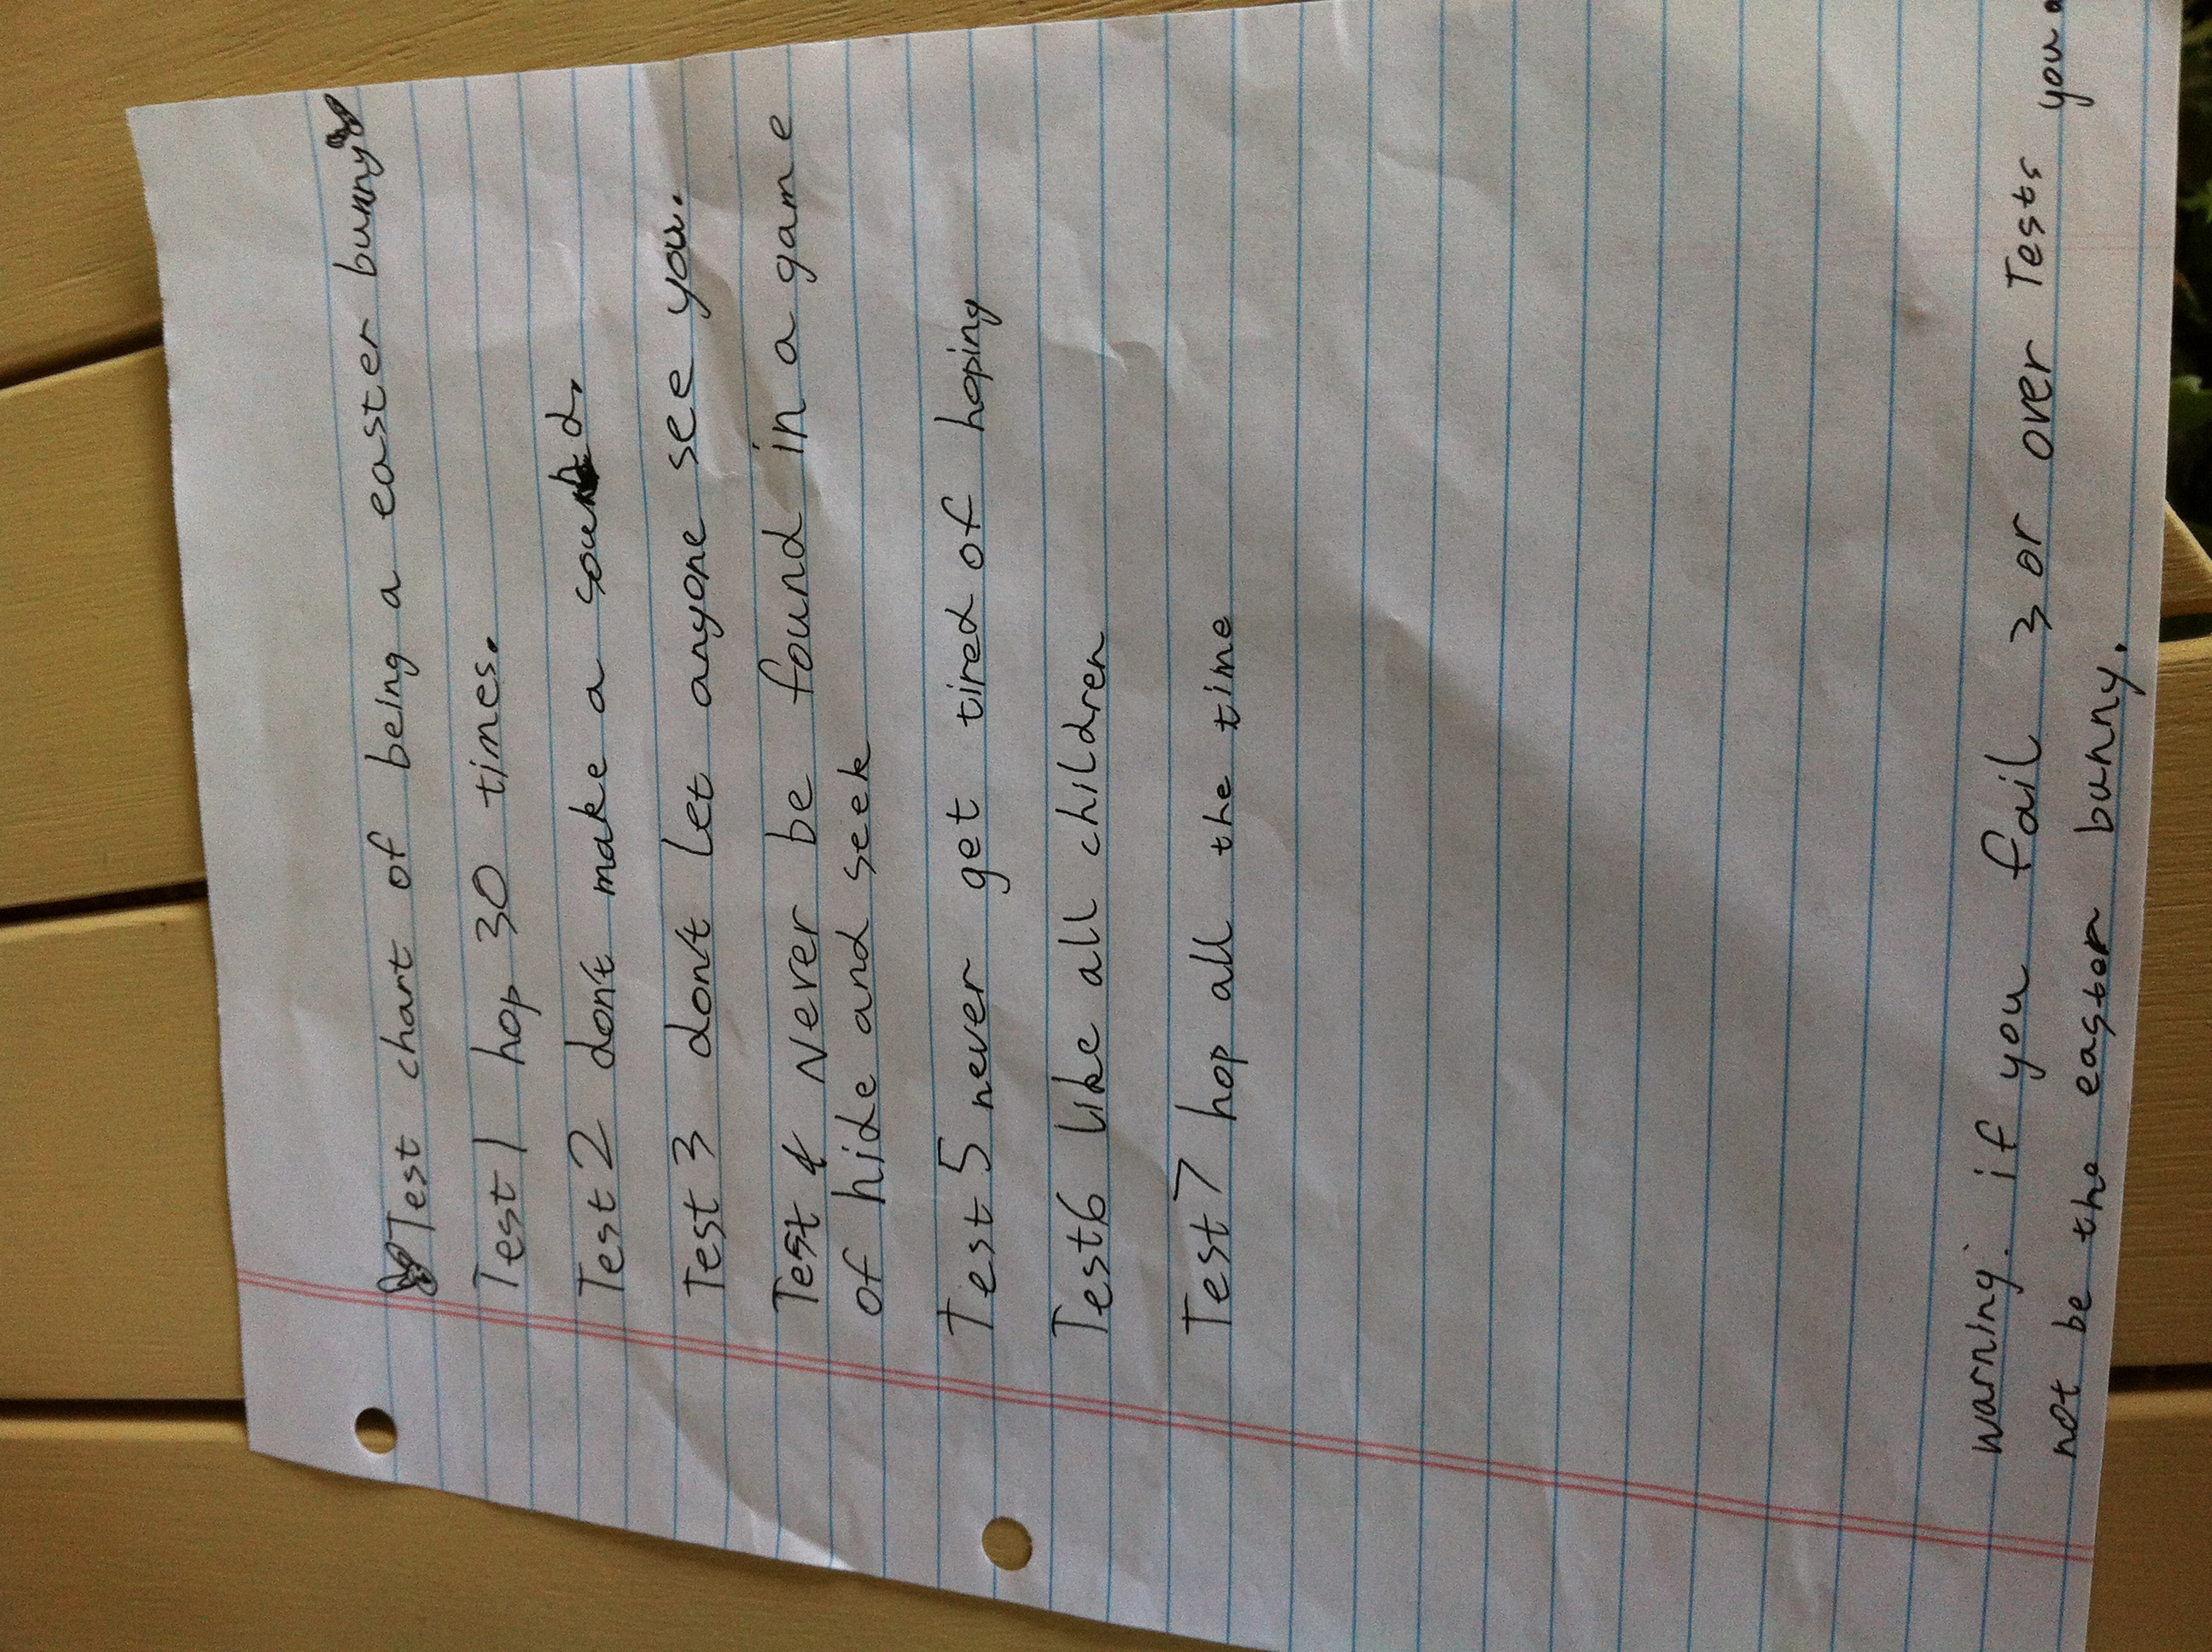 Test chart of being a easter bunny
Test 1 hop 30 times.
Test 2 don't make a sound.
Test 3 don't let anyone see you.
Test 4 never be found in a game
of hide and seek
Test 5 never get tired of hoping
Test 6 like all children
Test 7 hop all the time
warning: if you fail 3 or over Tests you
not be the easter bunny.